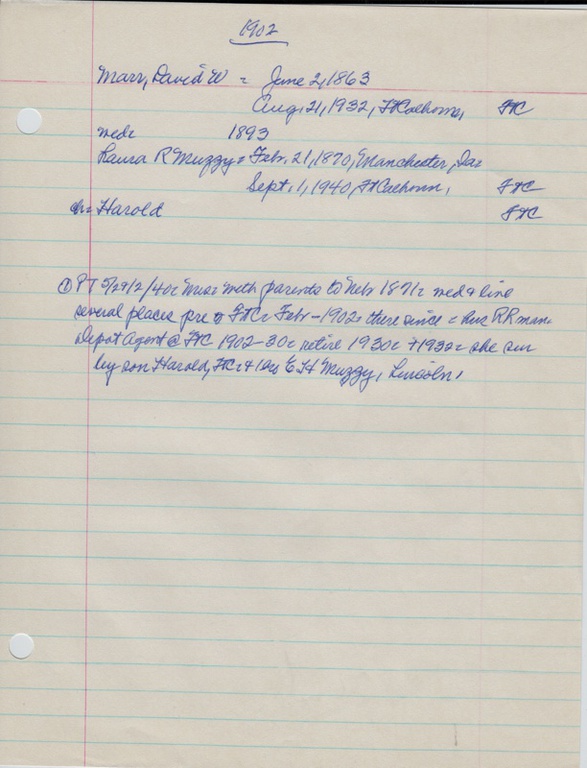 1902
Marr, David W = June 2, 1863
Aug. 21, 1932, FtCalhoun, FTC
wed= 1893
Laura R Muzzy = Feb. 21, 1870, Manchester, Ia=
Sept. 1, 1940, FtCalhoun, FTC
ch= Harold FTC
① PT = Mrs= with parents to Neb 1871= wed & live
several places pre to FTC= Feb - 1902= there since = hus RR man=
Depot Agent @ FTC 1902-30= retire 1930= +1932= she sur
by son Harold, FTC= + bro E H Muzzy, Lincoln,